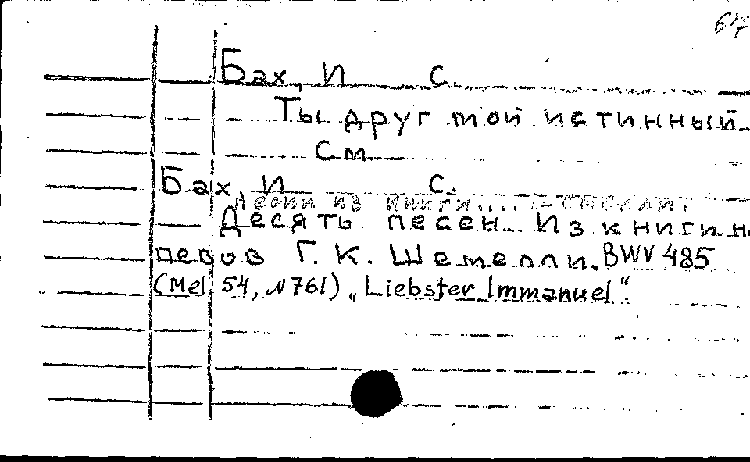 67
Бах, И С.
Ты друг мой истинный
См
Бах, И С.
Песни из книги
Десять песен из книги н
певов Г. К. Шемелли. BWV 485
(Mel 54, N 761) „Liebster Immanuel“